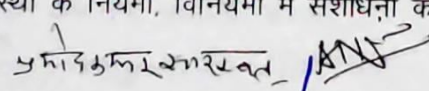 स्था के नियमों, विनियमों में संशोधनों के
प्रमोद कुमार सारस्वत